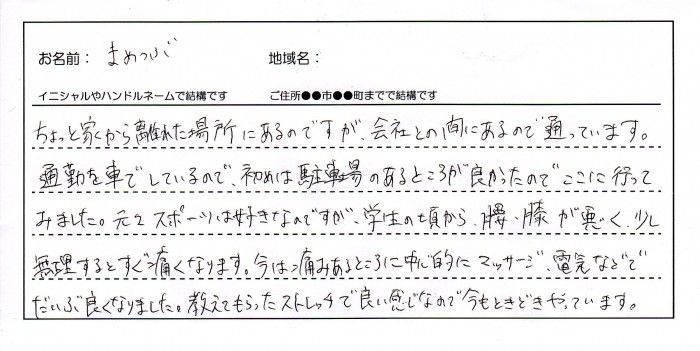 お名前： まめつぶ 地域名：
イニシャルやハンドルネームで結構です ご住所●●市●●町までで結構です
ちょっと家から離れた場所にあるのですが、会社との間にあるので通っています。
通勤を車でしているので、初めは駐車場のあるところが良かったのでここに行って
みました。元々スポーツは好きなのですが、学生の頃から、腰・膝が悪く、少し
無理するとすぐ痛くなります。今は痛みあるところに中心的にマッサージ、電気などで
だいぶ良くなりました。教えてもらったストレッチで良い感じなので今もときどきやっています。